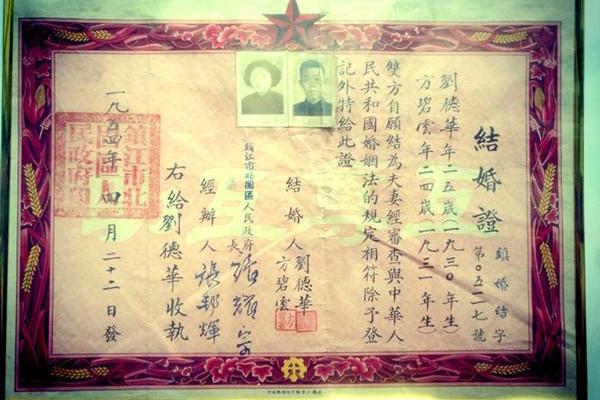 結婚證
鎮婚結字
第0五二一七號
劉德華年二五歲(一九三0年生)
方碧雲年二四歲(一九三一年生)
雙方自願結為夫妻經審查與中華人
民共和國婚姻法的規定相符除予登
記外特給此證
結婚人劉德華
方碧雲
鎮江市北固區人民政府
區長
經辦人張邦輝
右給劉德華收執
一九五四年四月二十二日發
鎮江市北
區人
民政府印